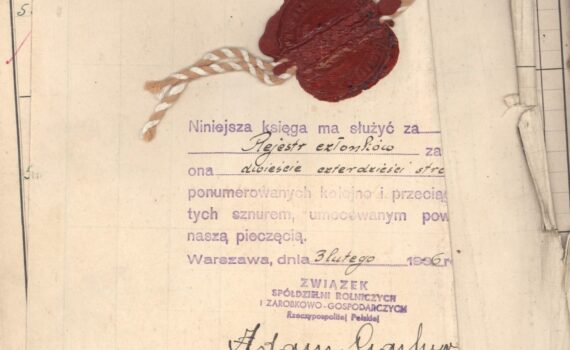 Niniejsza księga ma służyć za
Rejestr członków za
ona dwieście czterdzieści stro
ponumerowanych kolejno i przeciąg
tych sznurem, umocowanym pow
naszą pieczęcią.
Warszawa, dnia 3 lutego 1946 r
ZWIĄZEK
SPÓŁDZIELNI ROLNICZYCH
I ZAROBKOWO-GOSPODARCZYCH
Rzeczypospolitej Polskiej
Adam